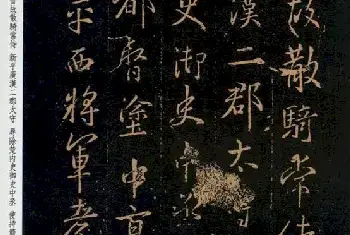 故散騎常侍
漢二郡太守
史御史中丞
都督塗中京
平西將軍孝
故散騎常侍 新平廣漢二郡太守 尋除楚内史御史中丞 使持節